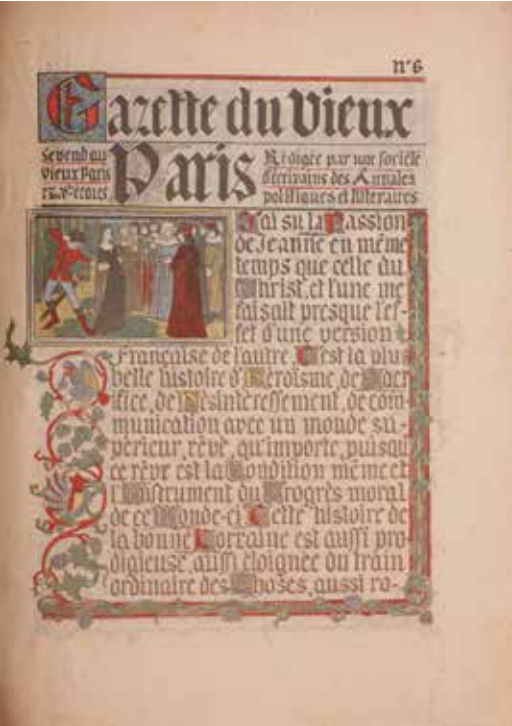 n°6
Gazette du Vieux
Paris
Se vend au
vieux Paris
Rédigée par une société
d'écrivains des Annales
politiques et littéraires
J'ai su la Passion
de Jeanne en même
temps que celle du
Christ, et l'une me
faisait presque l'ef-
fet d'une version
Française de l'autre. C'est la plus
belle histoire d'Héroïsme, de Sacri
fice, de Désintéressement, de com-
munication avec un monde su-
périeur, rêvé, qu'importe, puisqu
ce rêve est la Condition même et
l'Instrument du Progrès moral
de ce Monde-ci. Cette histoire de
la bonne Lorraine est aussi pro
digieuse, aussi éloignée du train
ordinaire des Choses, aussi ra-